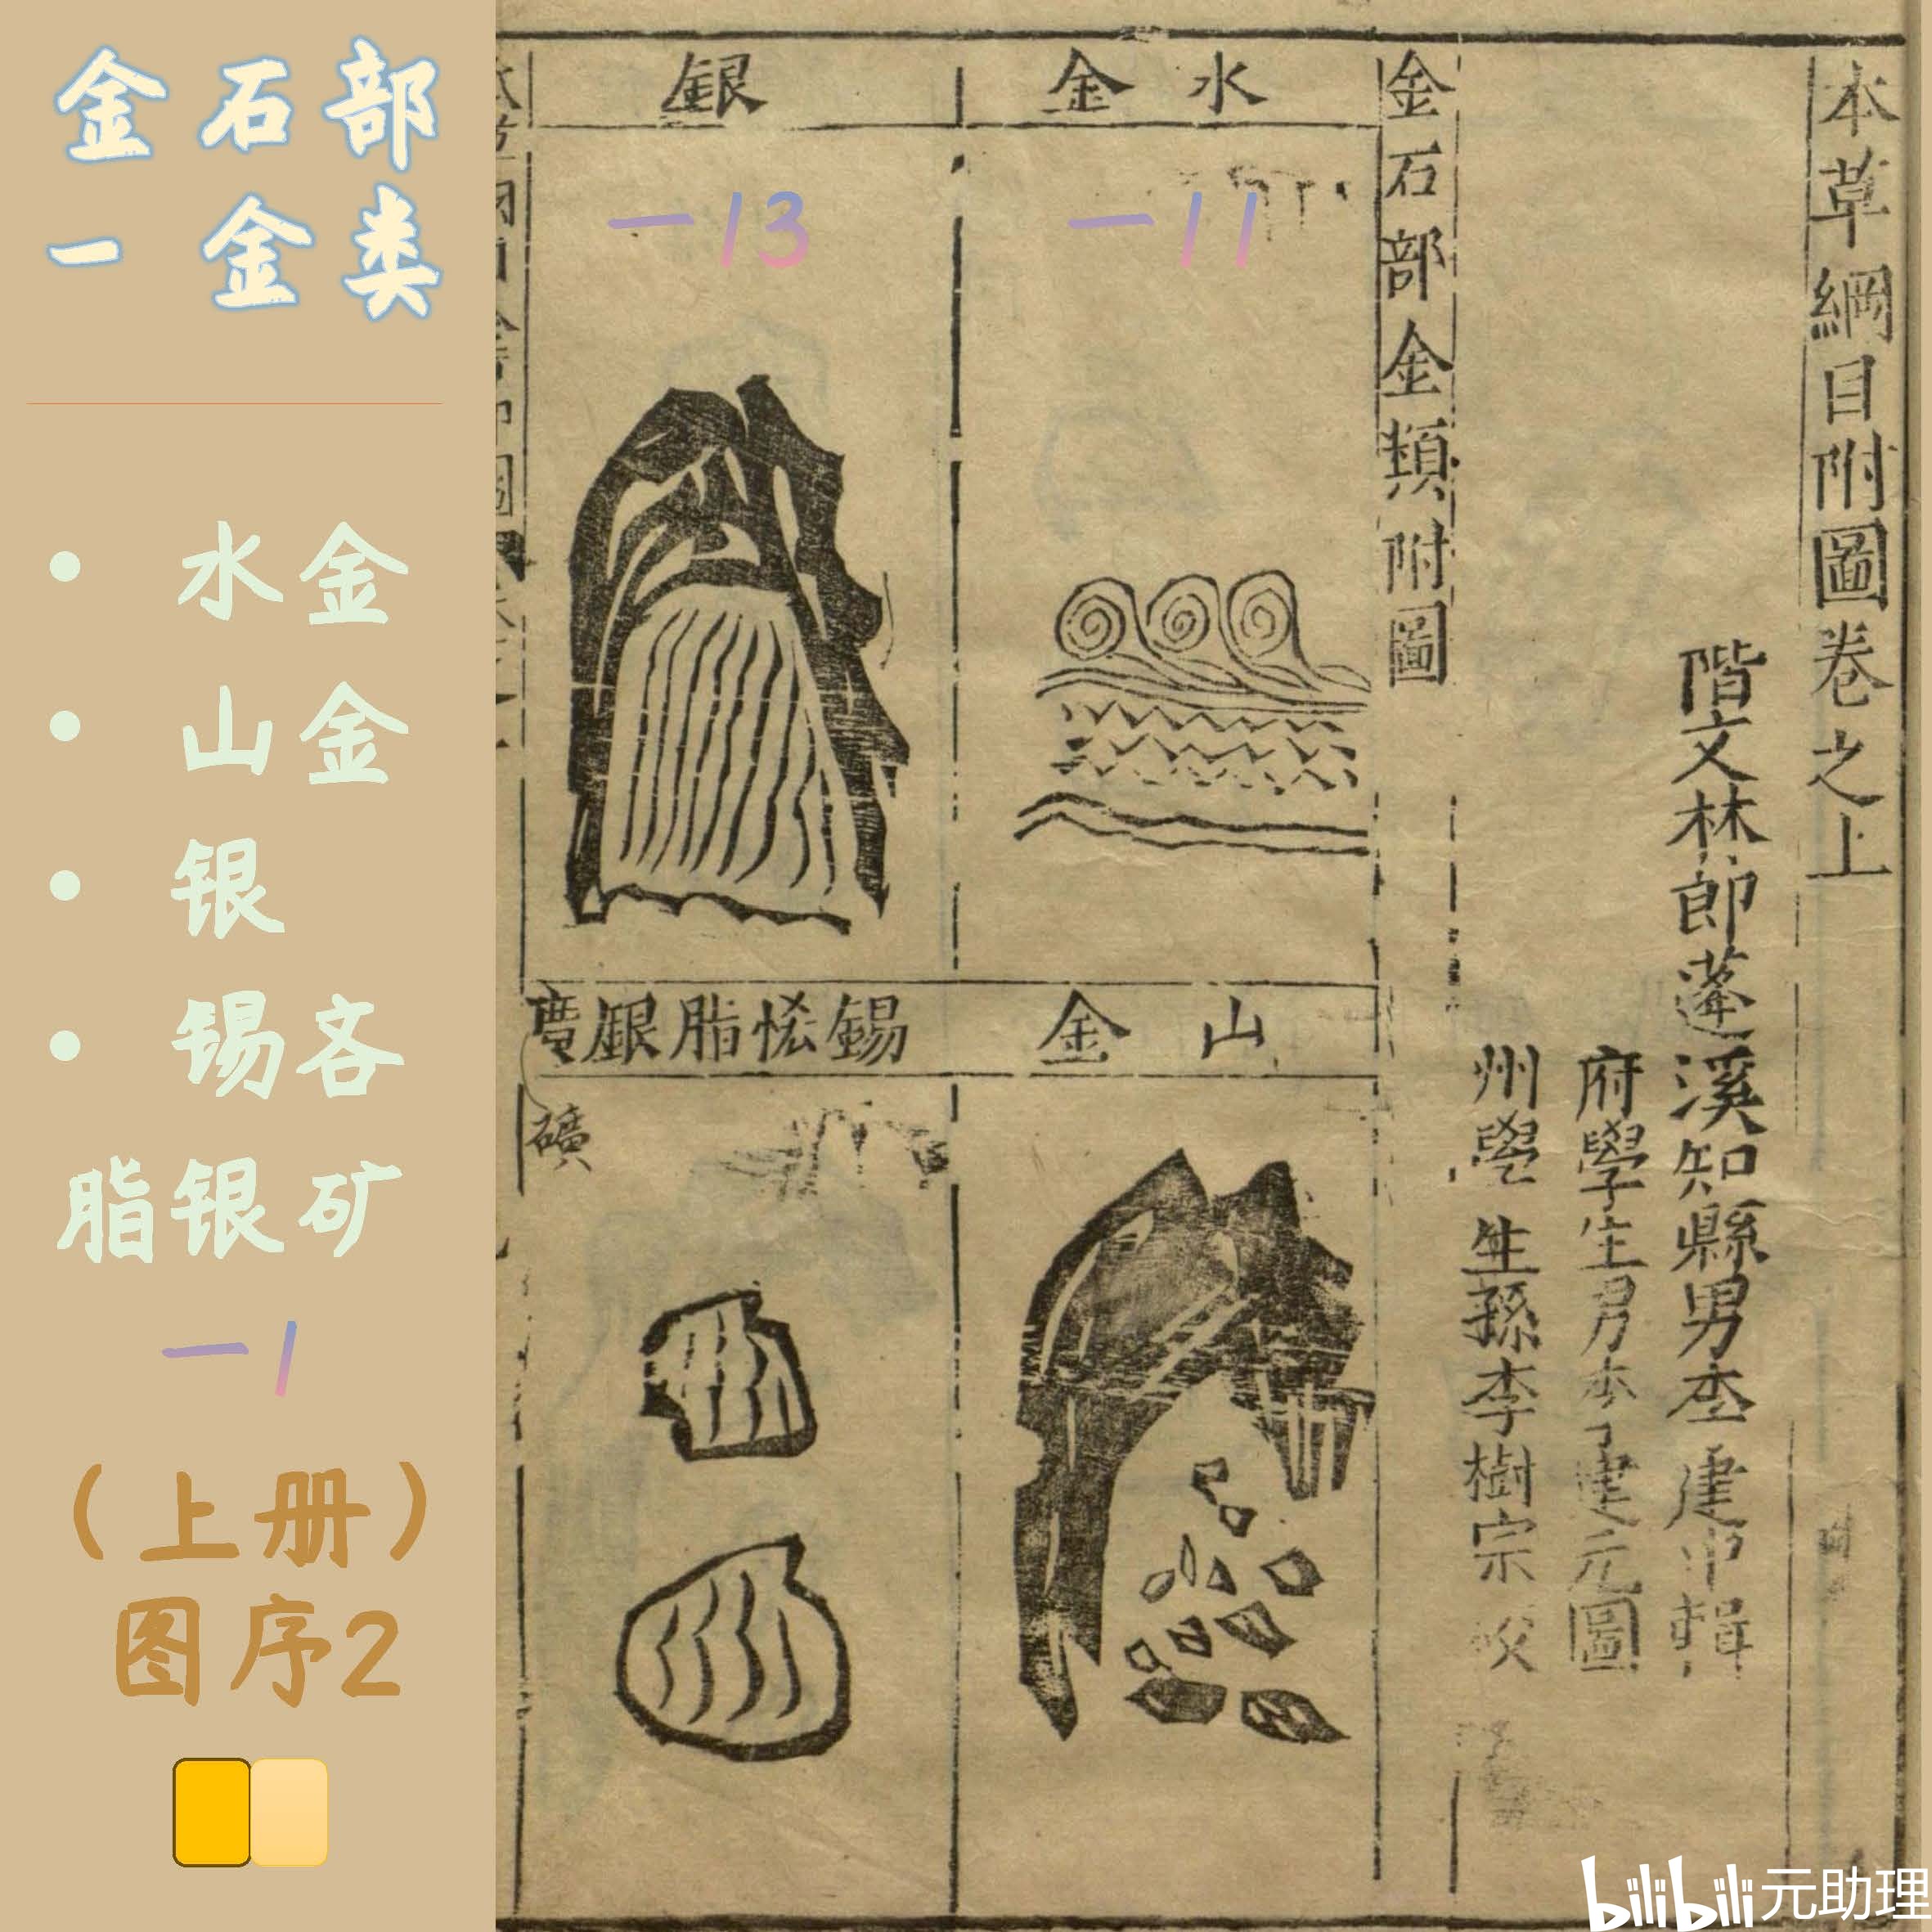 金石部
一金类
• 水金
• 山金
• 银
• 锡吝
脂银矿
一1
（上册）
图序2
本草綱目附圖卷之上
階文林郎蓬溪知縣男李建中輯
府學生男李建元圖
州學生孫李樹宗校
金石部金類附圖
水金
一11
銀
一13
山金
錫恡脂銀
礦
bilibili元助理